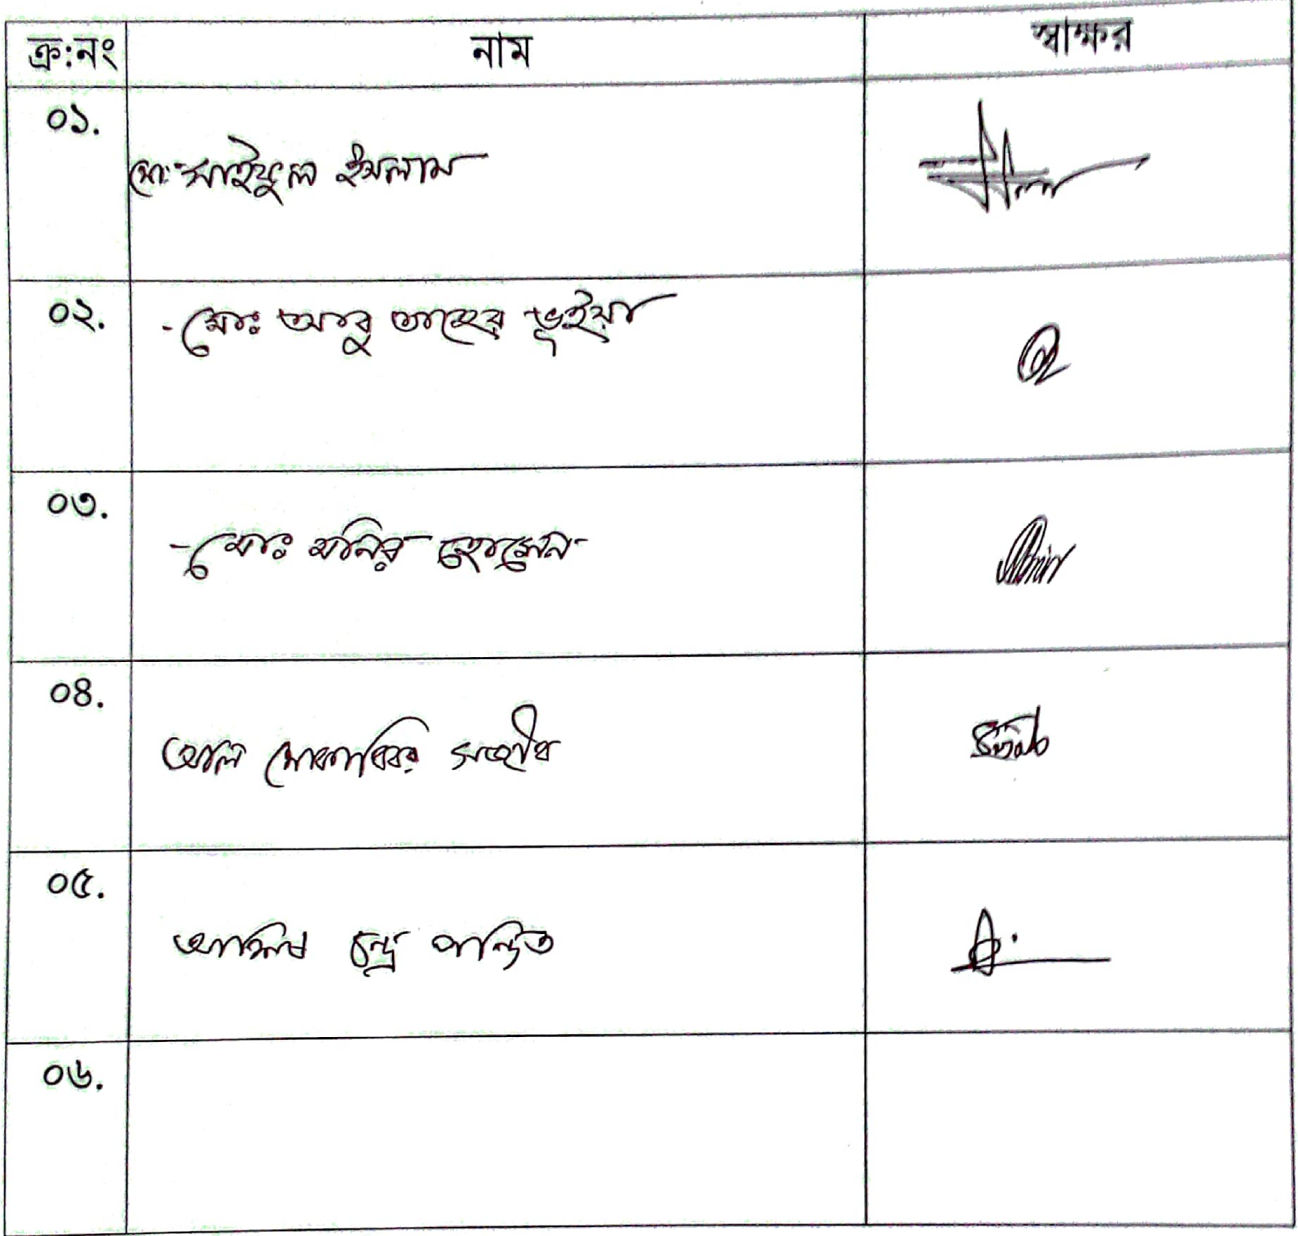 ক্র:নং নাম স্বাক্ষর
০১.
মো: সাইফুল ইসলাম
০২.
- মোঃ আবু তাহের ভূইয়া
০৩.
- মোঃ মনির হোসেন
০৪.
আল মোকাব্বির সহীব
০৫.
আশিষ চন্দ্র পন্ডিত
০৬.